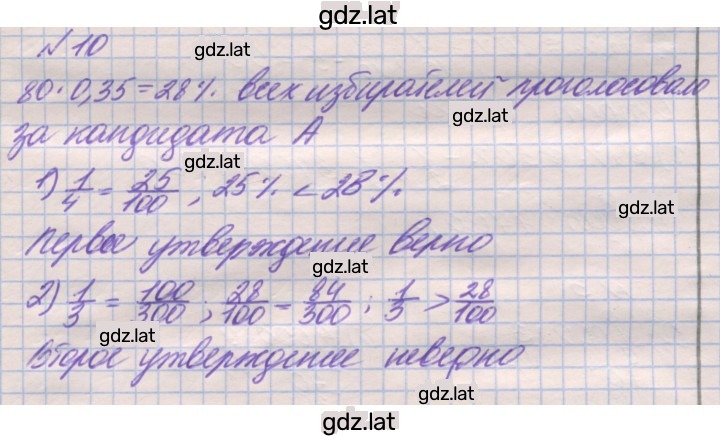 gdz.lat
№10
gdz.lat
80·0,35=28%. всех избирателей проголосовало
gdz.lat
за кандидата А
gdz.lat
1) 1/4 = 25/100 ; 25% < 28%.
gdz.lat
Первое утверждение верно
gdz.lat
2) 1/3 = 100/300 ; 28/100 = 84/300 ; 1/3 > 28/100
gdz.lat
Второе утверждение неверно
gdz.lat
gdz.lat